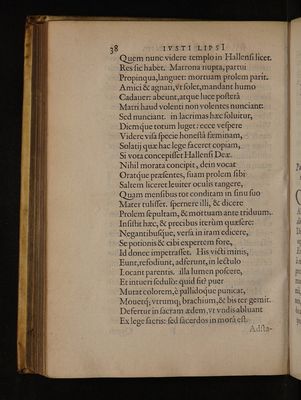 38 IVSTI LIPSI
Quem nunc videre templo in Hallensi licet.
Res sic habet. Matrona nupta, partui
Propinqua, languet: mortuam prolem parit.
Amici & agnati, vt solet, mandant humo
Cadauer: abeunt, atque luce posterâ
Matri haud volenti non volentes nunciant:
Sed nunciant. in lacrimas hæc soluitur,
Diemque totum luget: ecce vespere
Videre visa specie honestâ fœminam,
Solatij quæ hac lege faceret copiam,
Si vota concepisset Hallensi Deæ.
Nihil morata concipit, dein vocat
Oratque præsentes, suam prolem sibi
Saltem liceret leuiter oculis tangere,
Quam mensibus tot conditam in sinu suo
Mater tulisset. spernere illi, & dicere
Prolem sepultam, & mortuam ante triduum.
Insistit hæc, & precibus iterùm quæsere:
Negantibusque, versa in iram edicere,
Se potionis & cibi expertem fore,
Id donec impetrasset. His victi minis,
Eunt, refodiunt, adferunt, in lectulo
Locant parentis. illa lumen poscere,
Et intueri seduló: quid fit? puer
Mutat colorem, è pallidoque punicat,
Mouetq; vtrumq; brachium, & bis ter gemit.
Defertur in sacram ædem, vt vndis abluant
Ex lege sacris: sed sacerdos in morâ est.
Adsta-